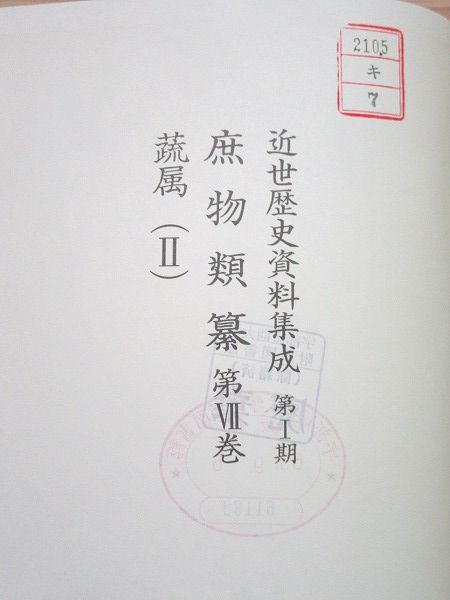 2105
キ
7
近世歴史資料集成 第Ⅰ期
庶物類纂 第Ⅶ巻
蔬属（Ⅱ）